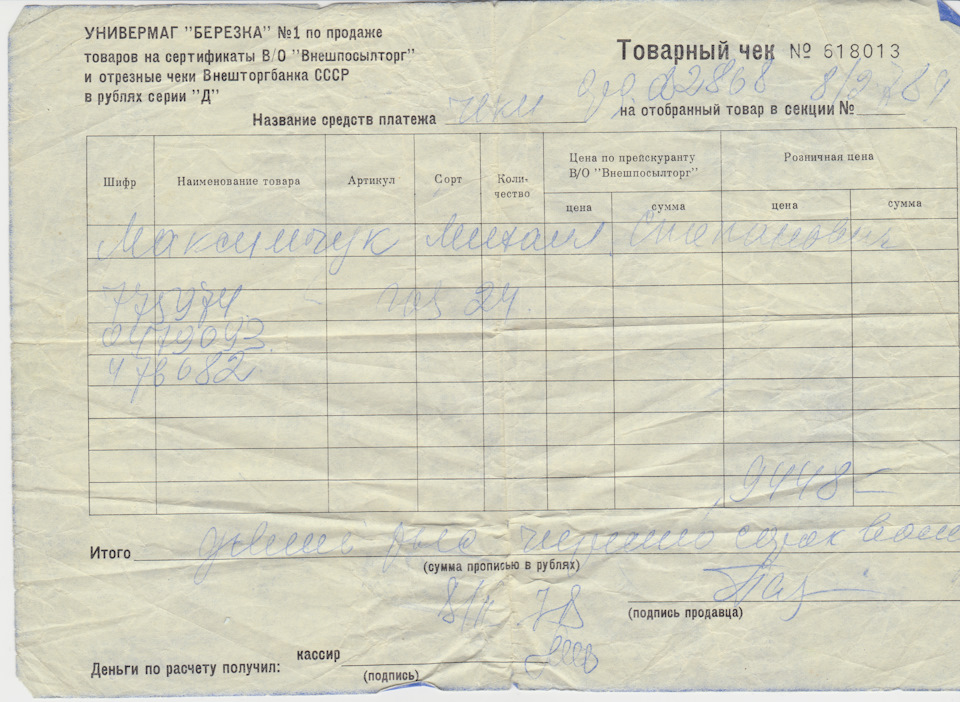 УНИВЕРМАГ "БЕРЕЗКА" №1 по продаже
товаров на сертификаты В/О "Внешпосылторг"
и отрезные чеки Внешторгбанка СССР
в рублях серии "Д"
Товарный чек № 618013
Название средств платежа чеки на отобранный товар в секции №
Шифр Наименование товара Артикул Сорт Коли-чество Цена по прейскуранту В/О "Внешпосылторг" Розничная цена
цена сумма цена сумма
Максимчук Михаил Степанович
775974 газ 24.
0479093
476682
9448 —
Итого девять тыс. четыреста сорок восемь
(сумма прописью в рублях)
(подпись продавца)
Деньги по расчету получил: кассир
(подпись)